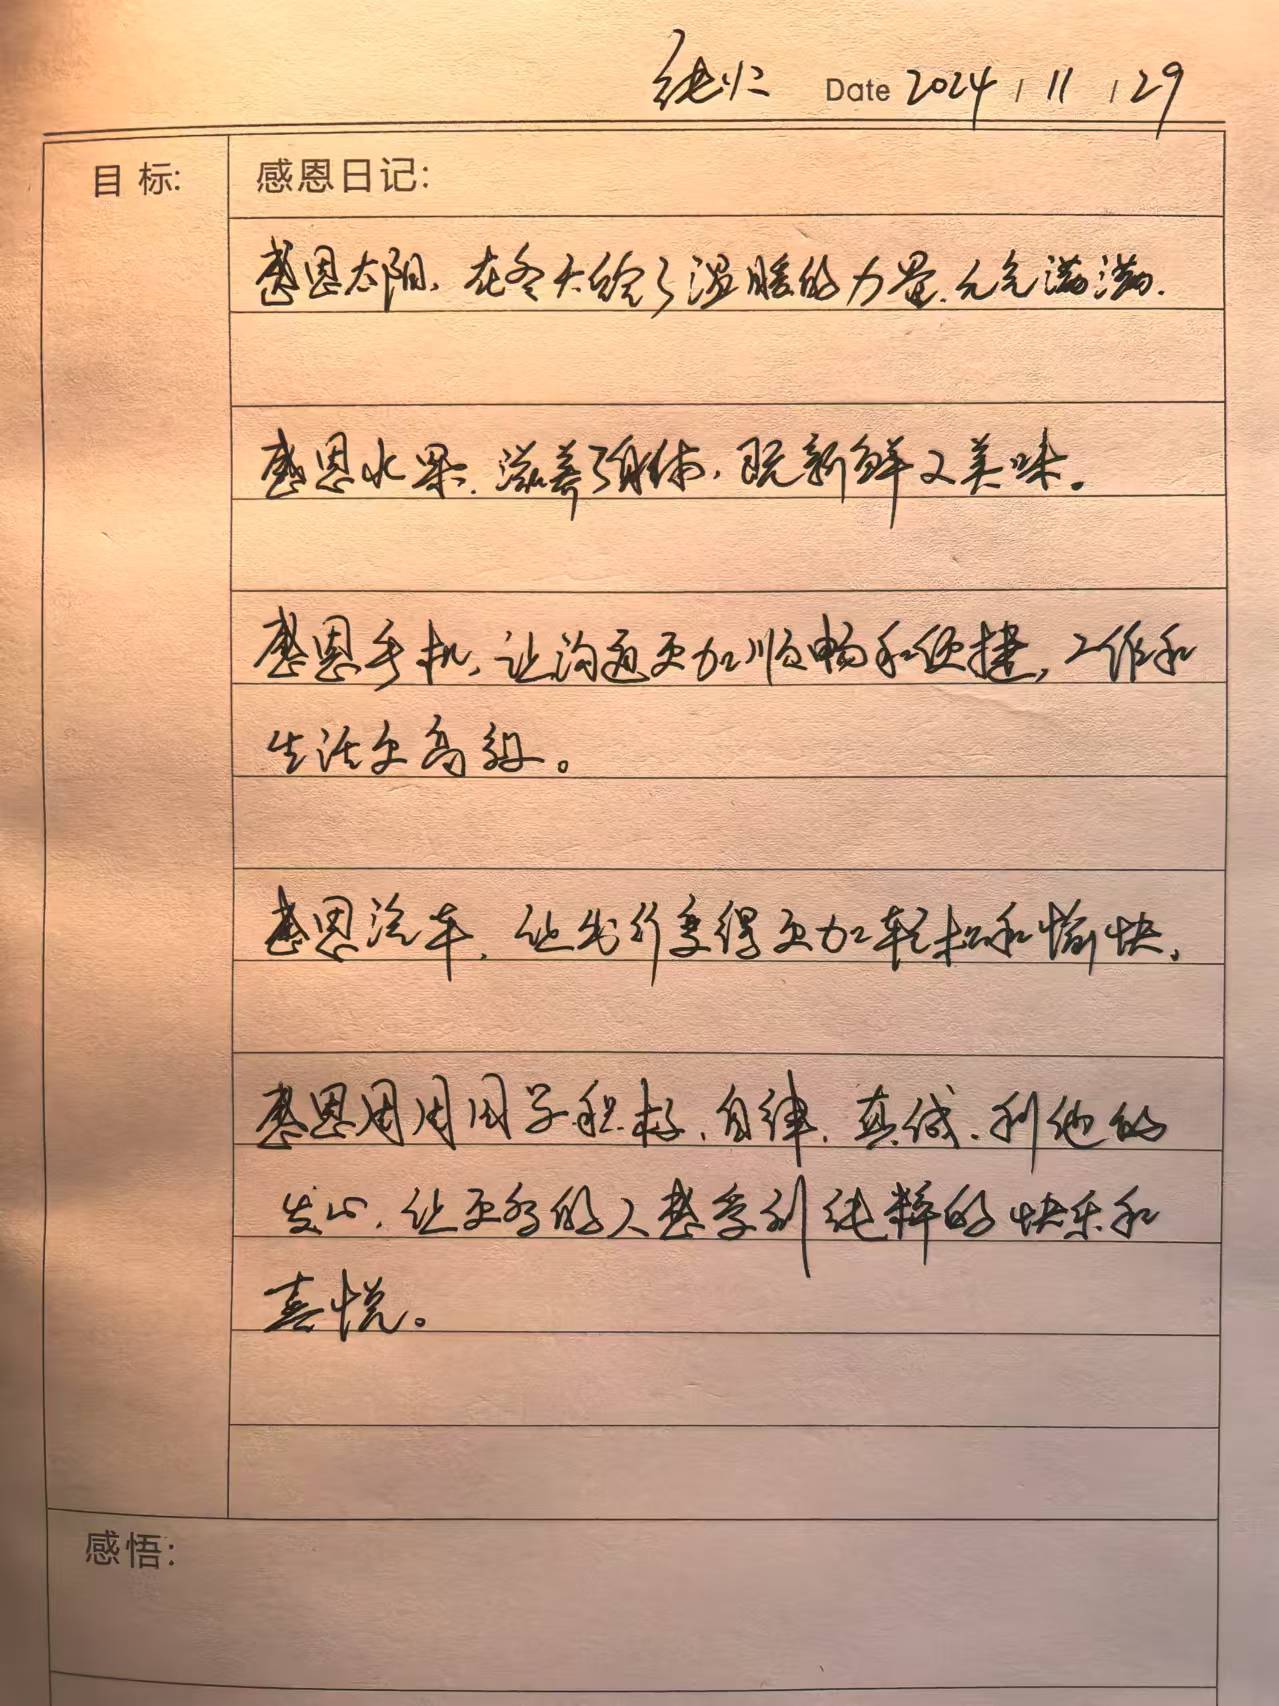 纯仁 Date 2024 / 11 / 29
目 标:
感恩日记:
感恩太阳、在冬天给了温暖的力量、元气满满.
感恩水果、滋养了身体，既新鲜又美味。
感恩手机，让沟通更加顺畅和便捷，工作和
生活更高效。
感恩汽车，让出行变得更加轻松和愉快。
感恩周周同学积极、自律、真诚、利他的
发心，让更多的人感受到纯粹的快乐和
喜悦。
感悟: